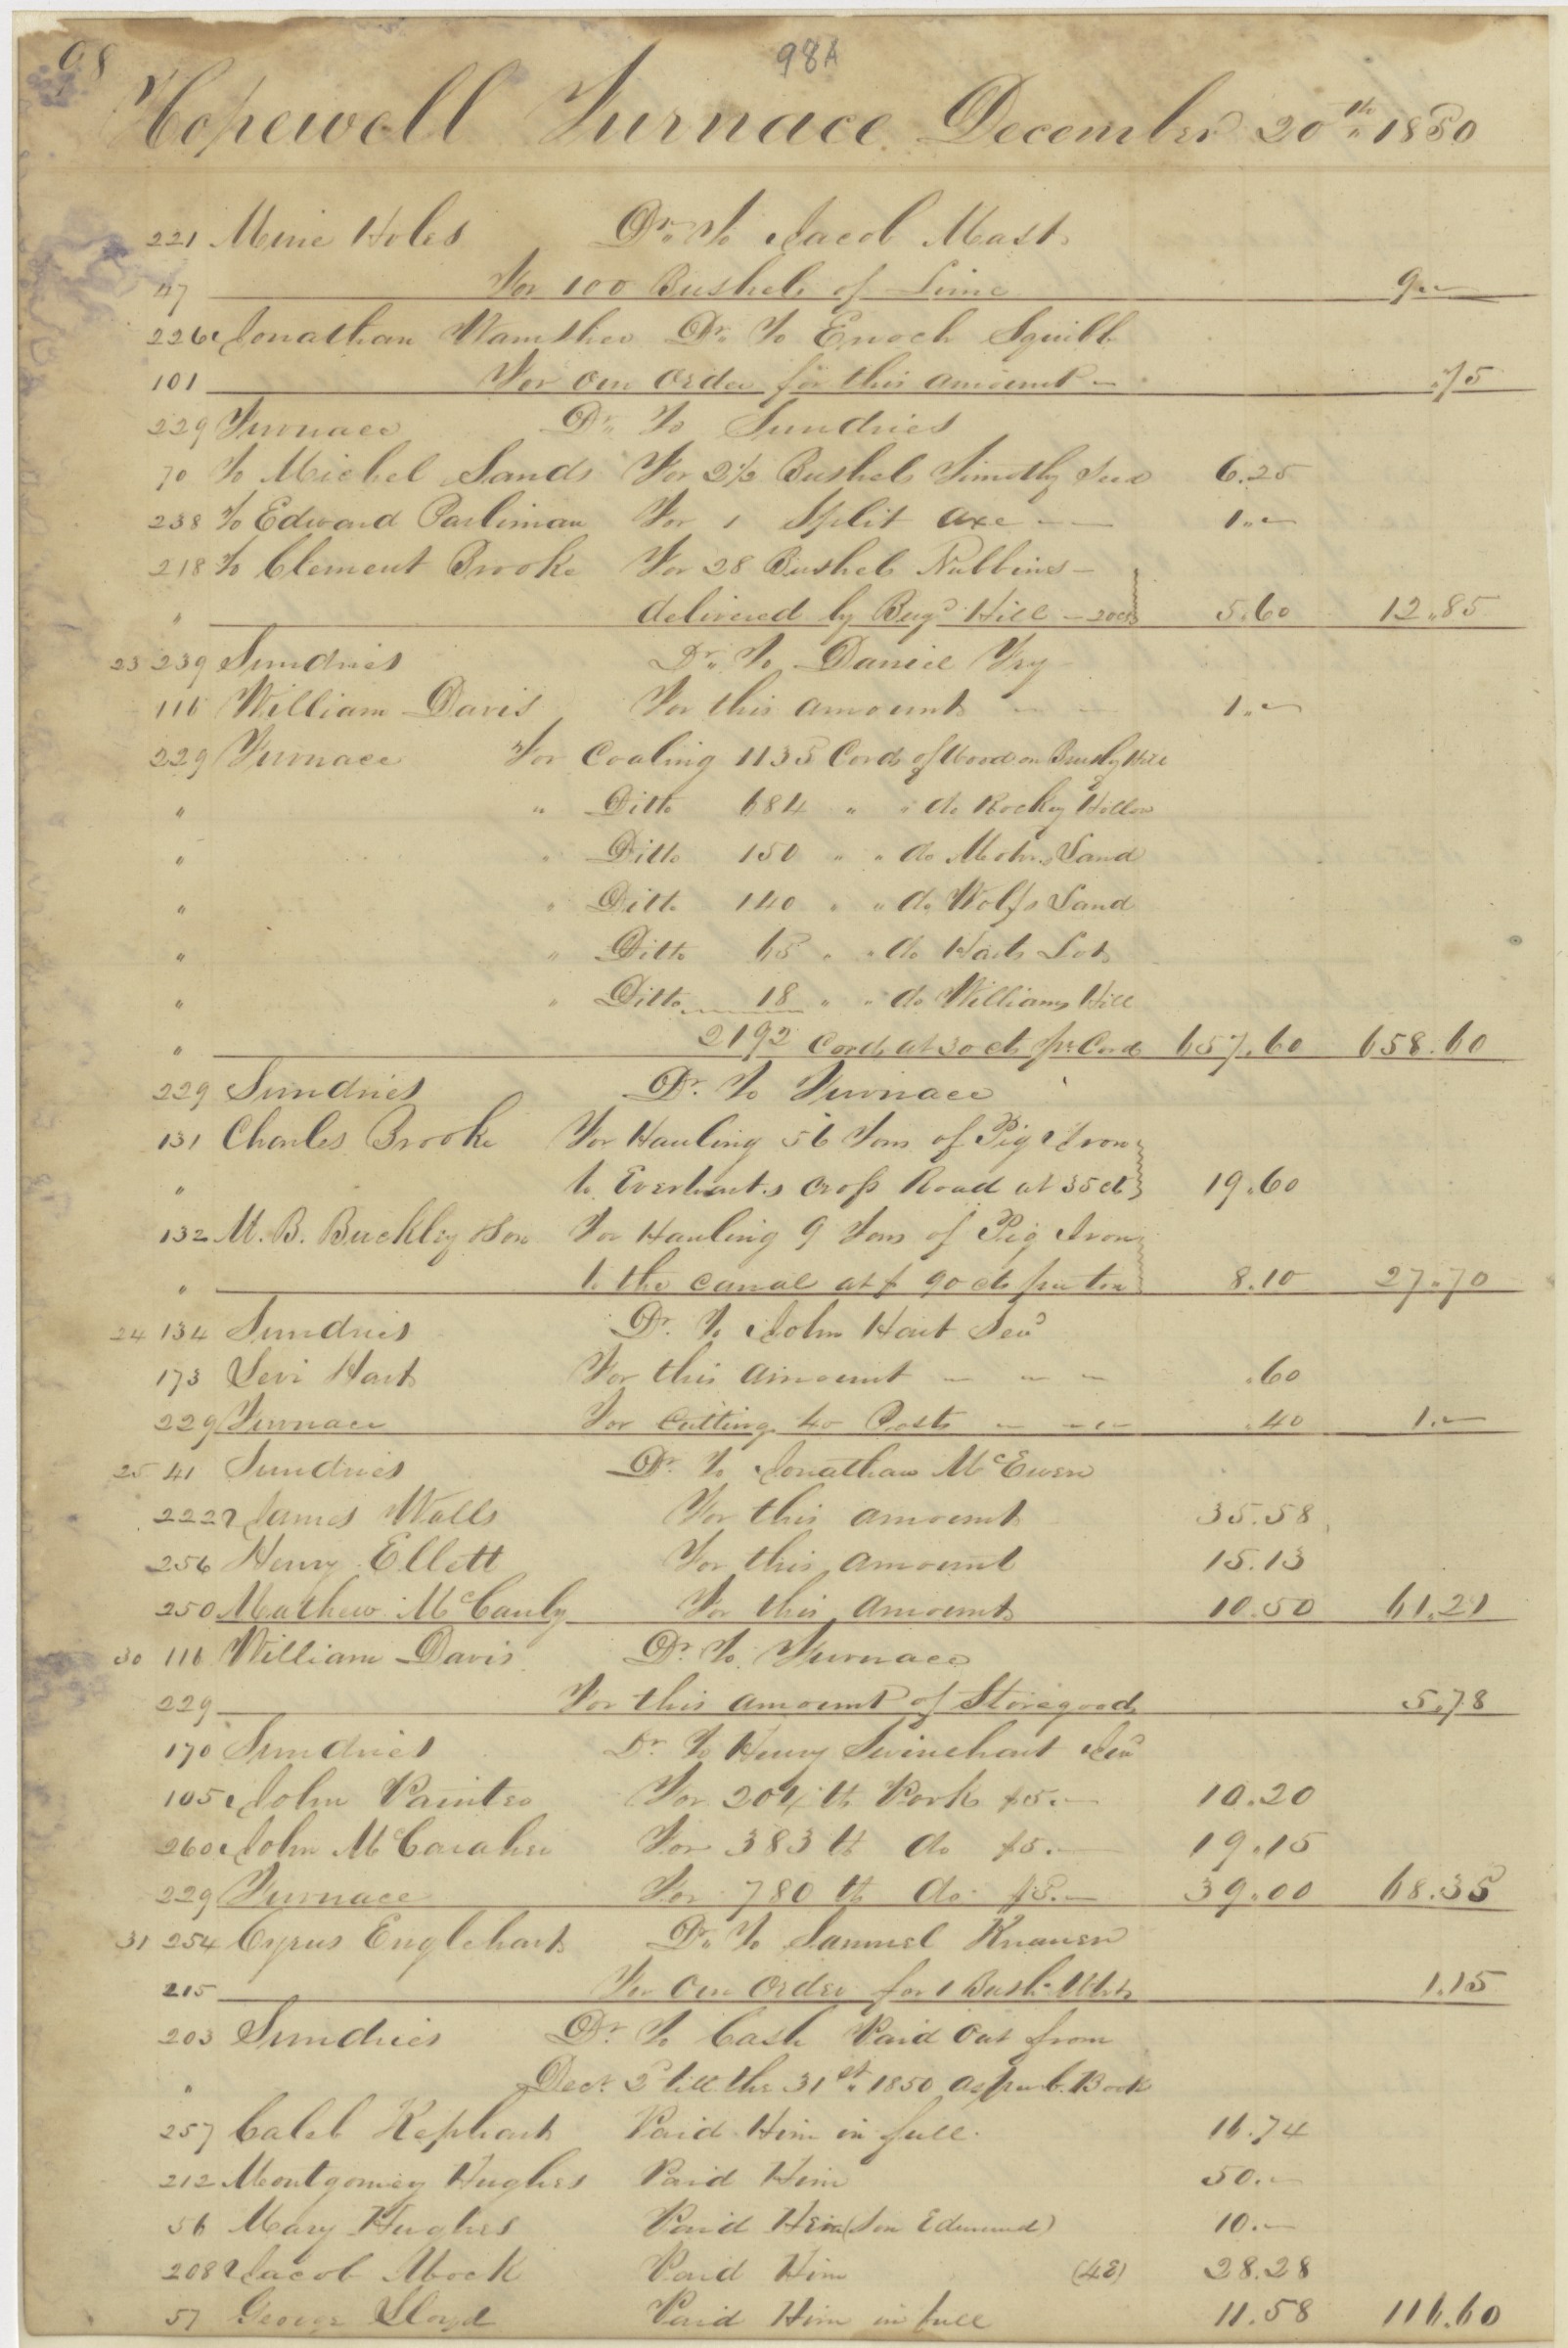 98
98A
Hopewell Furnace December 20th 1850
221 Mine Holes Dr. To Jacob Mast
47 For 100 Bushels of Lime 9.—
226 Jonathan Wamsher Dr. To Enoch Squibb
101 For our order for this amount — .75
229 Furnace Dr. To Sundries
70 To Michel Sands For 2½ Bushels Timothy Seed 6.25
238 To Edward Parliman For 1 Split axe — — 1.—
218 To Clement Brooke For 28 Bushels Nubbins —
" delivered by Benj. Hill — 20cts 5.60 12.85
23 239 Sundries Dr. To Daniel Fry
116 William Davis For this amount — — 1.—
229 Furnace For Coaling 1135 Cords of Wood on Brushy Hill
" " Ditto 684 " " do Rocky Hollow
" " Ditto 150 " " do Mohrs Land
" " Ditto 140 " " do Wolfs Land
" " Ditto 65 " " do Harts Lot
" " Ditto 18 " " do Williams Hill
" 2192 Cords at 30 cts pr. Cord 657.60 658.60
229 Sundries Dr. To Furnace
131 Charles Brooke For Hauling 56 Tons of Pig Iron
" to Everharts Cross Road at 35 cts 19.60
132 M. B. Buckley & Son For Hauling 9 Tons of Pig Iron
" to the canal at 90 cts per ton 8.10 27.70
24 134 Sundries Dr. To John Hart Senr
173 Levi Hart For this amount — — — .60
229 Furnace For Cutting 40 Posts — — — .40 1.—
25 41 Sundries Dr. To Jonathan McEwen
222 James Walls For this amount 35.58
256 Henry Ellett For this amount 15.13
250 Mathew McCauly For this amount 10.50 61.21
30 116 William Davis Dr. To Furnace
229 For this amount of Storegoods 5.78
170 Sundries Dr. To Henry Swinehart Senr
105 John Painter For 204 lb Pork $5.— 10.20
260 John McCaraher For 383 lb do $5.— 19.15
229 Furnace For 780 lb do $5.— 39.00 68.35
31 254 Cyrus Englehart Dr. To Samuel Knauer
215 For our order for 1 Bush. Wht. 1.15
203 Sundries Dr. To Cash Paid Out from
" Decr. 2d till the 31st 1850 as per C. Book
257 Caleb Kephart Paid Him in full. 16.74
212 Montgomery Hughes Paid Him 50.—
56 Mary Hughes Paid Her (Son Edmund) 10.—
208 Jacob Mock Paid Him (48) 28.28
57 George Lloyd Paid Him in full 11.58 116.60